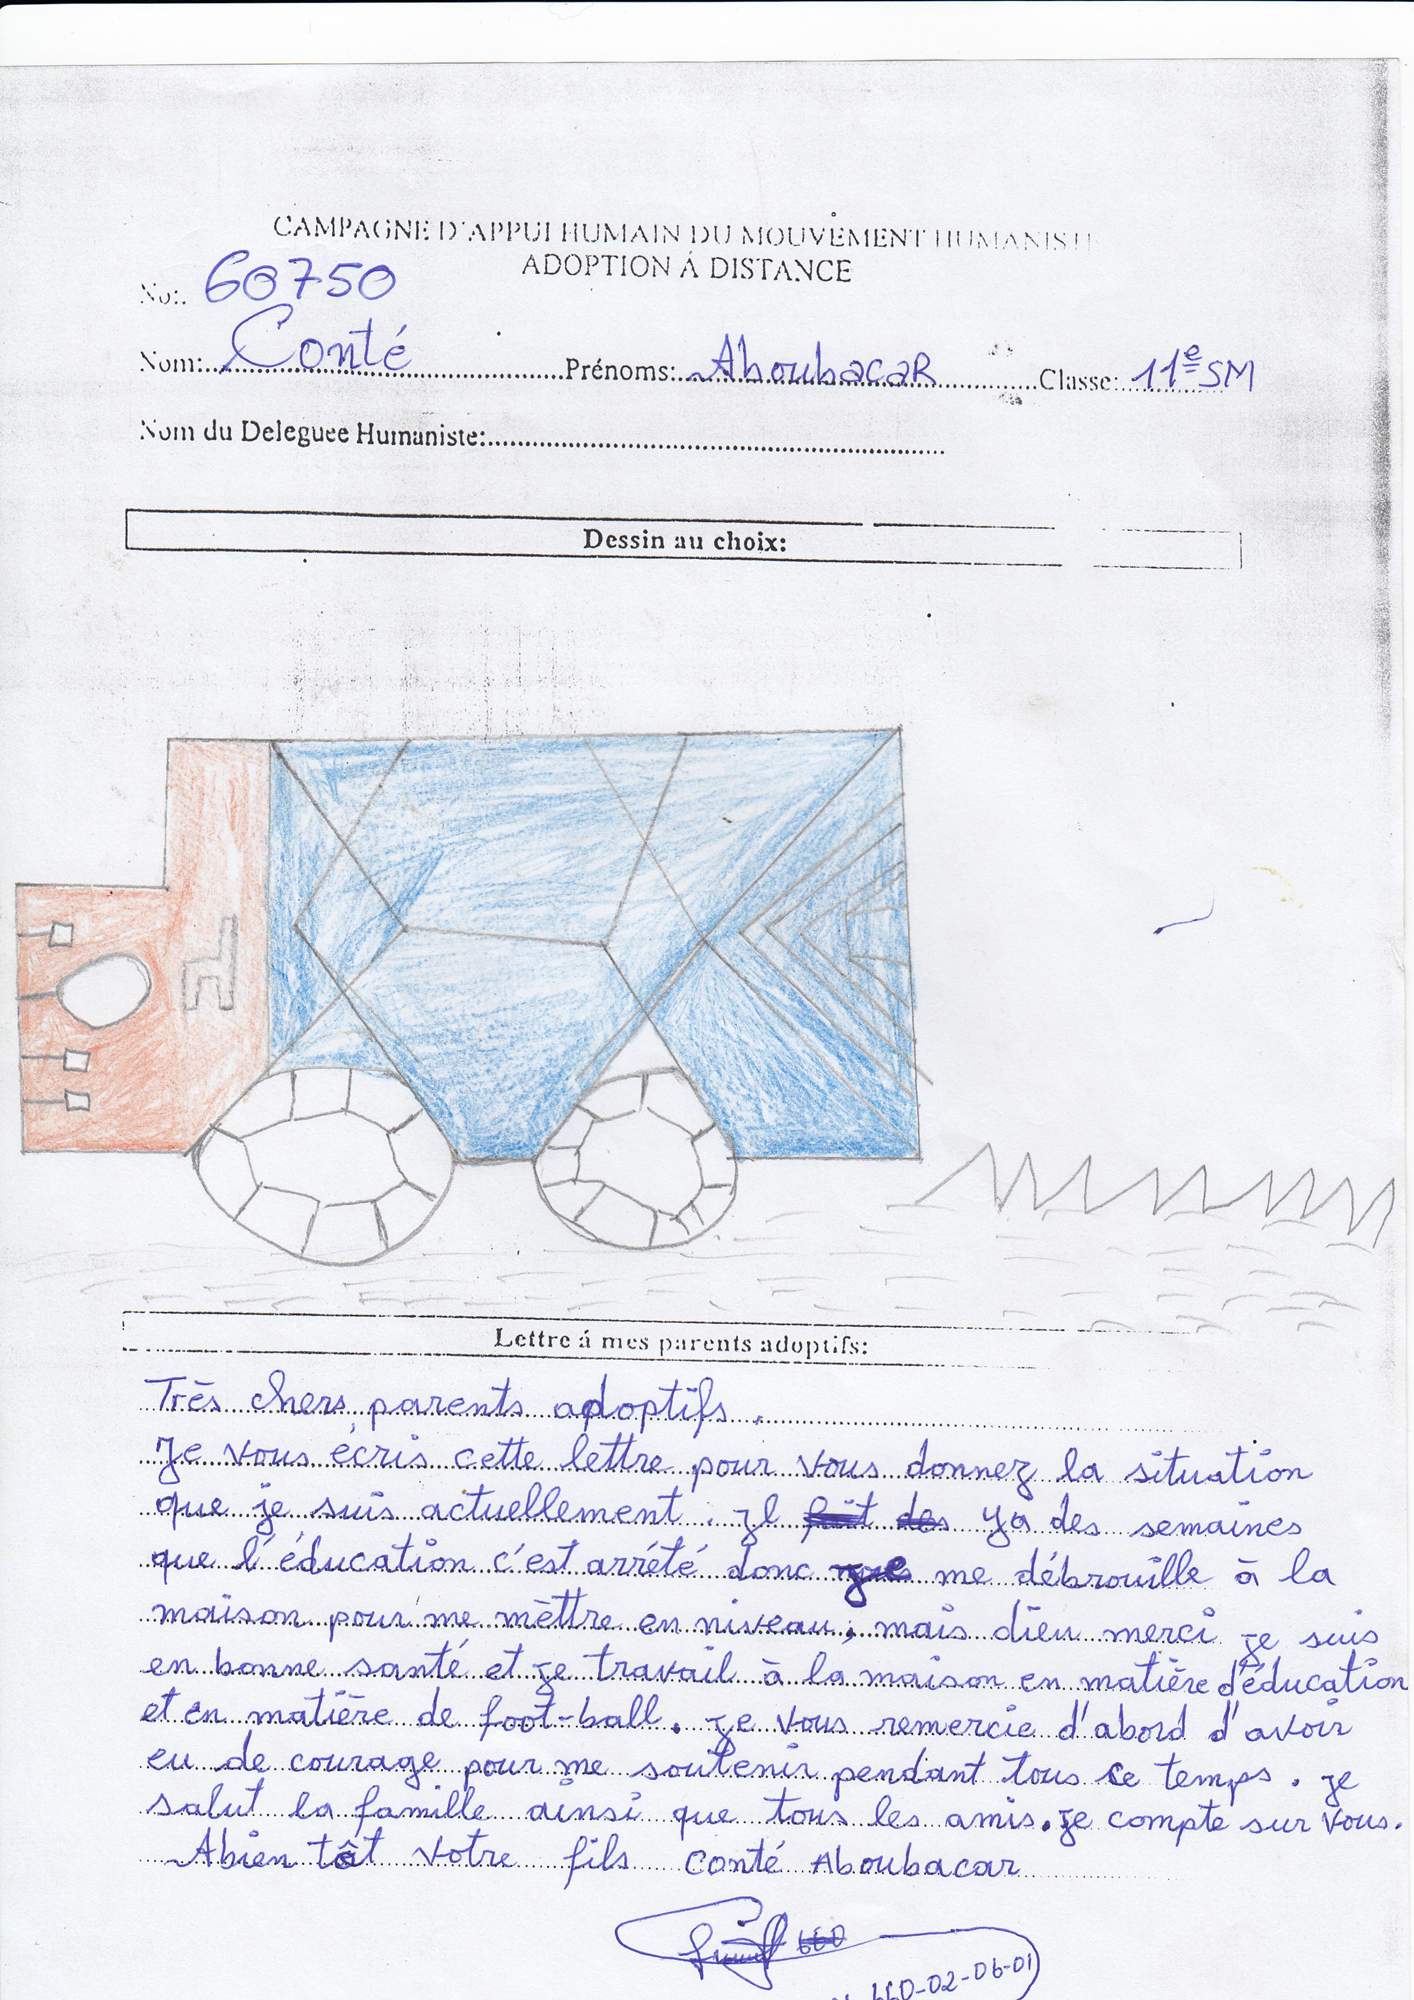 CAMPAGNE D'APPUI HUMAIN DU MOUVEMENT HUMANISTE
ADOPTION Á DISTANCE
No:. 60750
Nom: Conté Prénoms: Aboubacar Classe: 11e SM
Nom du Deleguee Humaniste:
Dessin au choix:
Lettre á mes parents adoptifs:
Très chers parents adoptifs.
Je vous écris cette lettre pour vous donnez la situation
que je suis actuellement. Il ya des semaines
que l'éducation c'est arrété donc je me débrouille à la
maison pour me mèttre en niveau, mais dieu merci je suis
en bonne santé et je travail à la maison en matière d'éducation
et en matière de foot-ball. Je vous remercie d'abord d'avoir
eu de courage pour me soutenir pendant tous ce temps. je
salut la famille ainsi que tous les amis. Je compte sur vous.
Abien tôt votre fils Conté Aboubacar
660-02-06-01